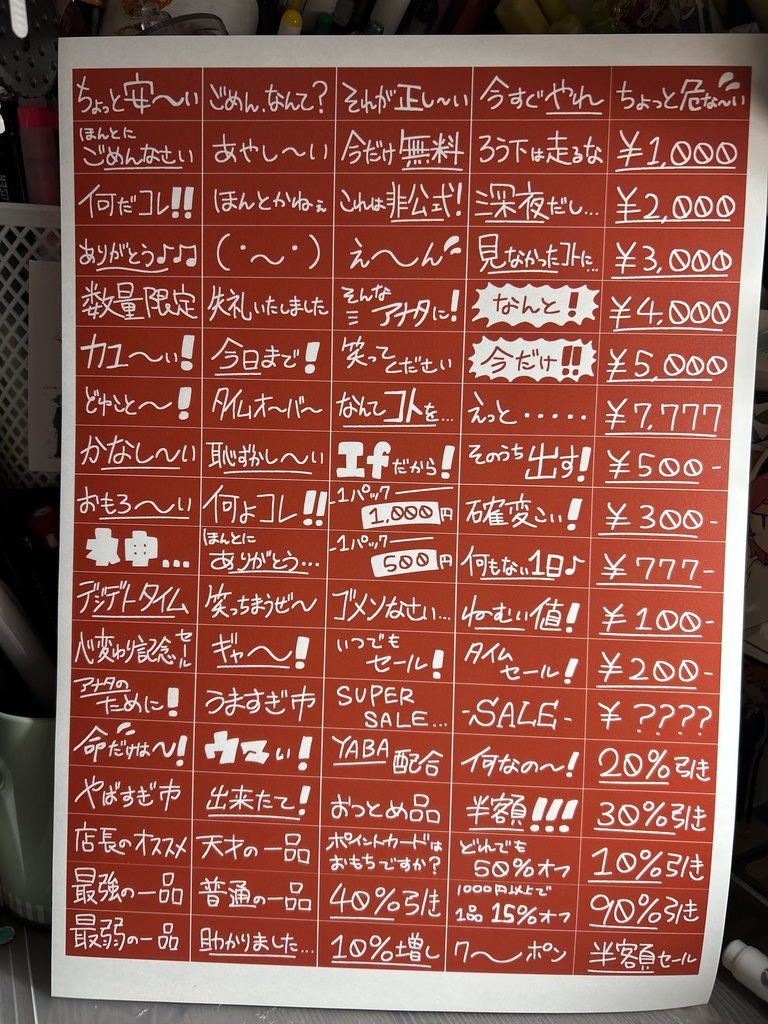 ちょっと安〜い
ごめん、なんて?
それが正し〜い
今すぐやれ
ちょっと危な〜い
ほんとに
ごめんなさい
あやし〜い
今だけ無料
ろう下は走るな
¥1,000
何だコレ!!
ほんとかねぇ
これは非公式!
深夜だし…
¥2,000
ありがとう♪♫
(・〜・)
え〜ん
見なかったコトに…
¥3,000
数量限定
失礼いたしました
そんな
アナタに!
なんと!
¥4,000
カユ〜い!
今日まで!
笑ってください
今だけ!!
¥5,000
どゆこと〜!
タイムオ〜バ〜
なんてコトを…
えっと・・・・・
¥7,777
かなし〜い
恥ずかし〜い
Ifだから!
そのうち出す!
¥500-
おもろ〜い
何よコレ!!
-1パック
1,000円
確変こい!
¥300-
ネ申…
ほんとに
ありがとう…
-1パック
500円
何もない1日♪
¥777-
デジデトタイム
笑っちまうぜ〜
ゴメンなさい…
ねむい値!
¥100-
心変わり記念セール
ギャ〜!
いつでも
セール!
タイム
セール!
¥200-
アナタの
ために!
うますぎ市
SUPER
SALE…
-SALE-
¥????
命だけは〜!
ウマい!
YABA配合
何なの〜!
20%引き
やばすぎ市
出来たて!
おつとめ品
半額!!!
30%引き
店長のオススメ
天才の一品
ポイントカードは
おもちですか?
どれでも
50%オフ
10%引き
最強の一品
普通の一品
40%引き
1000円以上で
1品15%オフ
90%引き
最弱の一品
助かりました…
10%増し
ク〜ポン
半額セール